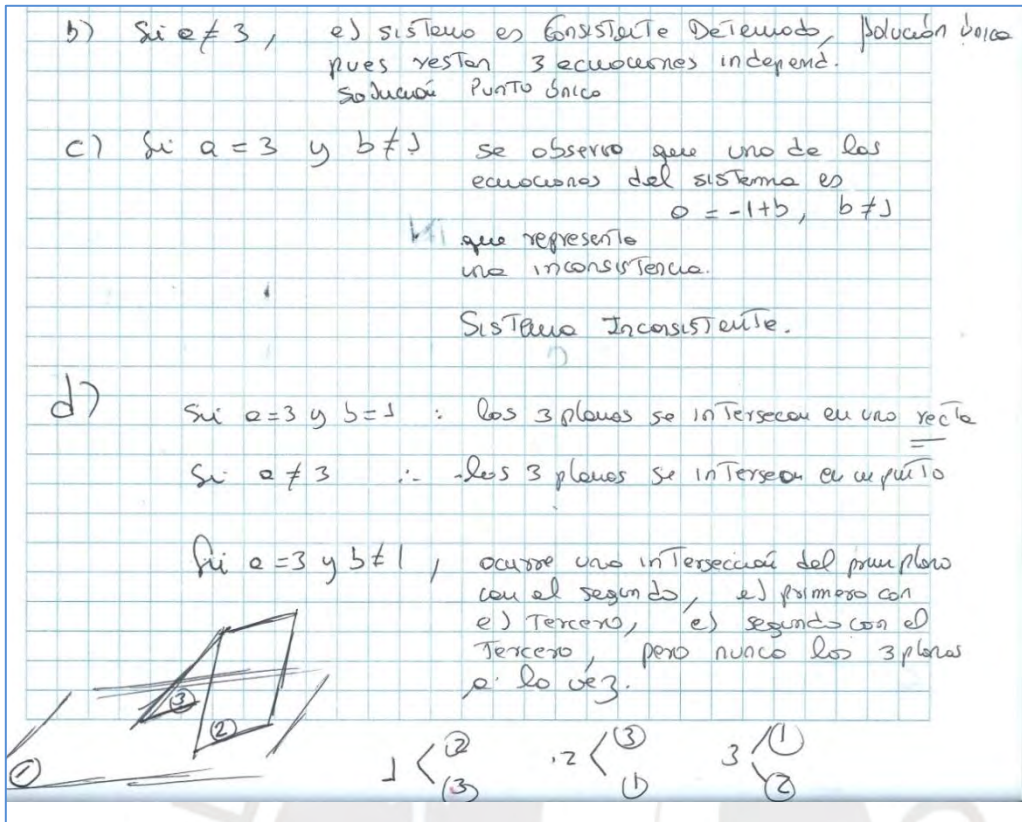 b) Si a ≠ 3, el sistema es Consistente Determado, Solución única
pues restan 3 ecuaciones independ.
Solución Punto único
c) Si a = 3 y b ≠ 1 se observa que una de las
ecuaciones del sistema es
0 = -1+b, b ≠ 1
que representa
una inconsistencia.
Sistema Inconsistente.
d) Si a=3 y b=1 : los 3 planos se intersecan en una recta
Si a ≠ 3 ∴ los 3 planos se intersecan en un punto
Si a = 3 y b ≠ 1, ocurre una intersección del prim plano
con el segundo, el primero con
el Tercero, el segundo con el
Tercero, pero nunca los 3 planos
a la vez.
3
2
1
1 < 2 3
2 < 3 1
3 < 1 2